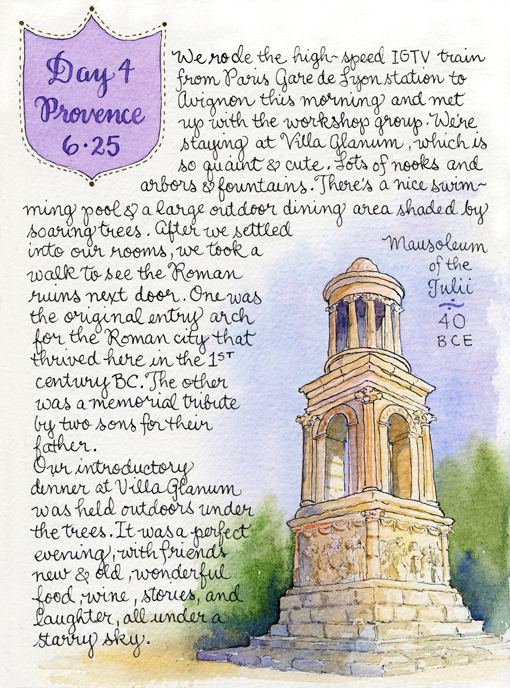 Day 4
Provence
6·25
We rode the high-speed IGTV train
from Paris Gare de Lyon station to
Avignon this morning and met
up with the workshop group. We're
staying at Villa Glanum, which is
so quaint & cute. Lots of nooks and
arbors & fountains. There's a nice swim-
ming pool & a large outdoor dining area shaded by
soaring trees. After we settled
into our rooms, we took a
walk to see the Roman
ruins next door. One was
the original entry arch
for the Roman city that
thrived here in the 1ST
century BC. The other
was a memorial tribute
by two sons for their
father.
Our introductory
dinner at Villa Glanum
was held outdoors under
the trees. It was a perfect
evening, with friends
new & old, wonderful
food, wine, stories, and
laughter, all under a
starry sky.
Mausoleum
of the
Julii
~
40
BCE